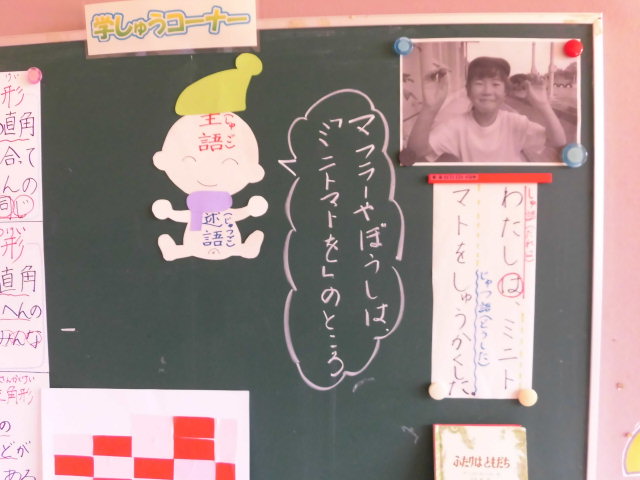 学しゅうコーナー
主語
しゅご
述語
(じゅつご)
マフラーやぼうしは、
「ミニトマトを」のところ
わたしは、ミニト
マトをしゅうかくした。
じゅつ語(どうした)
ふたりは ともだち
形
直角
合て
んの
同じ
形
直角
へんの
みんな
さんかけい
三角形
の
どが
ある